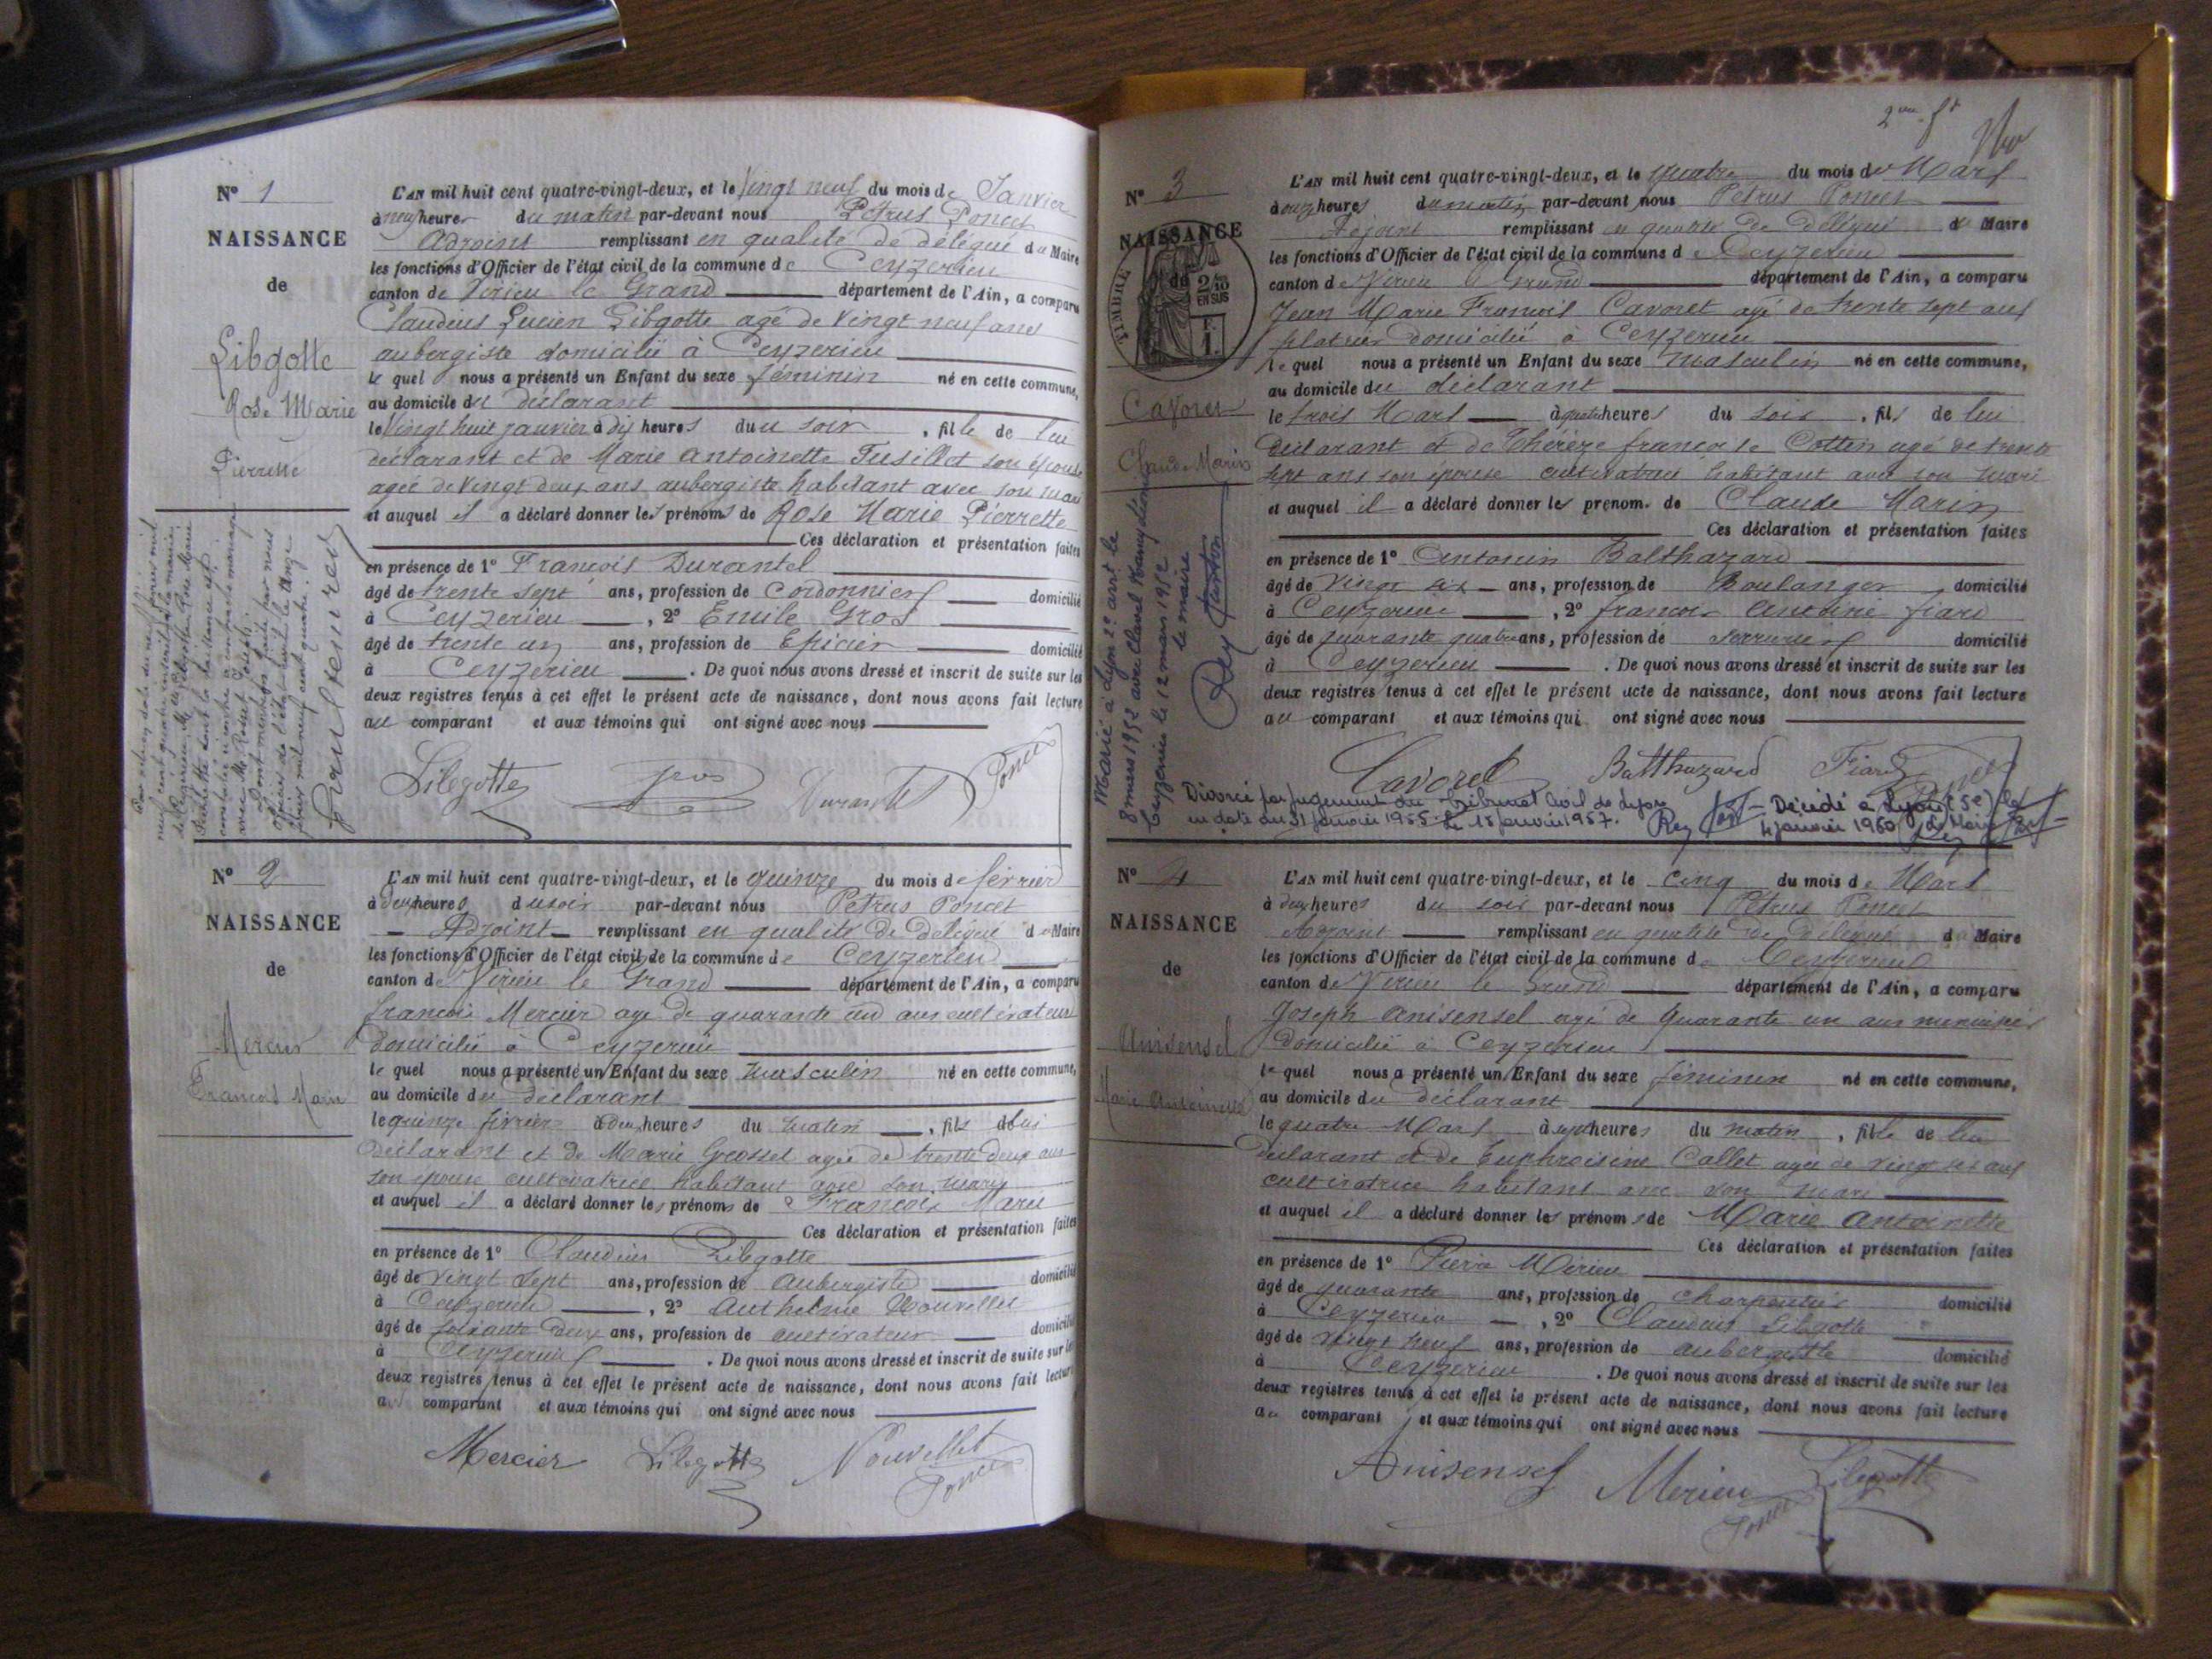 N° 1
NAISSANCE
de
Libgotte
Rose Marie
Pierrette
L'AN mil huit cent quatre-vingt-deux, et le Vingt neuf du mois de Janvier
à neuf heures du matin par-devant nous Pétrus Poncet
Adjoint remplissant en qualité de délégué du Maire
les fonctions d'Officier de l'état civil de la commune de Ceyzerieu
canton de Virieu le Grand département de l'Ain, a comparu
Claudius Lucien Libgotte agé de Vingt neuf ans
aubergiste domicilié à Ceyzerieu
le quel nous a présenté un Enfant du sexe féminin né en cette commune,
au domicile du déclarant
le Vingt huit janvier à dix heures du soir, fille de lui
déclarant et de Marie Antoinette Tusillet son épouse
agée de Vingt deux ans aubergiste habitant avec son mari
et auquel il a déclaré donner les prénoms de Rose Marie Pierrette
Ces déclaration et présentation faites
en présence de 1° François Durantel
âgé de trente sept ans, profession de Cordonnier domicilié
à Ceyzerieu, 2° Emile Gros
âgé de trente un ans, profession de Epicier domicilié
à Ceyzerieu. De quoi nous avons dressé et inscrit de suite sur les
deux registres tenus à cet effet le présent acte de naissance, dont nous avons fait lecture
au comparant et aux témoins qui ont signé avec nous
Libgotte Gros Durantel Poncet
N° 2
NAISSANCE
de
Mercier
François Marie
L'AN mil huit cent quatre-vingt-deux, et le quinze du mois de février
à deux heures du soir par-devant nous Petrus Poncet
Adjoint remplissant en qualité de délégué du Maire
les fonctions d'Officier de l'état civil de la commune de Ceyzerieu
canton de Virieu le Grand département de l'Ain, a comparu
françois Mercier agé de quarante ans cultivateur
domicilié à Ceyzerieu
le quel nous a présenté un Enfant du sexe masculin né en cette commune,
au domicile du déclarant
le quinze février à deux heures du matin, fils de lui
déclarant et de Marie Grosset agée de trente deux ans
son épouse cultivatrice habitant avec son mary
et auquel il a déclaré donner les prénoms de François Marie
Ces déclaration et présentation faites
en présence de 1° Claudius Libgotte
âgé de vingt sept ans, profession de aubergiste domicilié
à Ceyzerieu, 2° Anthelme Nouvellet
âgé de soixante deux ans, profession de cultivateur domicilié
à Ceyzerieu. De quoi nous avons dressé et inscrit de suite sur les
deux registres tenus à cet effet le présent acte de naissance, dont nous avons fait lecture
au comparant et aux témoins qui ont signé avec nous
Mercier Libgotte Nouvellet
Poncet
N° 3
NAISSANCE
de
TIMBRE
2/10
EN SUS
Cavoret
Claude Marin
L'AN mil huit cent quatre-vingt-deux, et le quatre du mois de Mars
à onze heures du matin par-devant nous Petrus Poncet
Adjoint remplissant en qualité de délégué du Maire
les fonctions d'Officier de l'état civil de la commune de Ceyzerieu
canton de Virieu le Grand département de l'Ain, a comparu
Jean Marie François Cavoret agé de trente sept ans
platrier domicilié à Ceyzerieu
le quel nous a présenté un Enfant du sexe masculin né en cette commune,
au domicile du déclarant
le trois Mars à quatre heures du soir, fils de lui
déclarant et de Thérèze françoise Cottin agé de trente
sept ans son épouse cultivatrice habitant avec son mari
et auquel il a déclaré donner les prénom. de Claude Marin
Ces déclaration et présentation faites
en présence de 1° Antonin Balthazard
âgé de vingt six ans, profession de Boulanger domicilié
à Ceyzerieu, 2° françois Antoine fiard
âgé de quarante quatre ans, profession de serrurier domicilié
à Ceyzerieu. De quoi nous avons dressé et inscrit de suite sur les
deux registres tenus à cet effet le présent acte de naissance, dont nous avons fait lecture
au comparant et aux témoins qui ont signé avec nous
Cavoret Balthazard Fiard Poncet
Marié à Lyon 2e arrt le
8 mars 1952 avec
Ceyzerieu le 12 mars 1952
le maire
Rey
Divorcé par jugement du Tribunal Civil de Lyon
en date du 31 janvier 1955. Le 15 janvier 1957. Rey
Décédé à Lyon (5e) le
4 janvier 1960 le Maire
N° 4
NAISSANCE
de
Anisensel
Marie Antoinette
L'AN mil huit cent quatre-vingt-deux, et le cinq du mois de Mars
à deux heures du soir par-devant nous Pétrus Poncet
Adjoint remplissant en qualité de délégué du Maire
les fonctions d'Officier de l'état civil de la commune de Ceyzerieu
canton de Virieu le Grand département de l'Ain, a comparu
Joseph Anisensel agé de quarante un ans menuisier
domicilié à Ceyzerieu
le quel nous a présenté un Enfant du sexe féminin né en cette commune,
au domicile du déclarant
le quatre Mars à sept heures du matin, fille de lui
déclarant et de Euphroisine Callet agée de vingt six ans
cultivatrice habitant avec son mari
et auquel il a déclaré donner les prénoms de Marie Antoinette
Ces déclaration et présentation faites
en présence de 1° Pierre Mérieu
âgé de quarante ans, profession de charpentier domicilié
à Ceyzerieu, 2° Claudius Libgotte
âgé de vingt neuf ans, profession de aubergiste domicilié
à Ceyzerieu. De quoi nous avons dressé et inscrit de suite sur les
deux registres tenus à cet effet le présent acte de naissance, dont nous avons fait lecture
au comparant et aux témoins qui ont signé avec nous
Anisensel Merieu Libgotte
Poncet